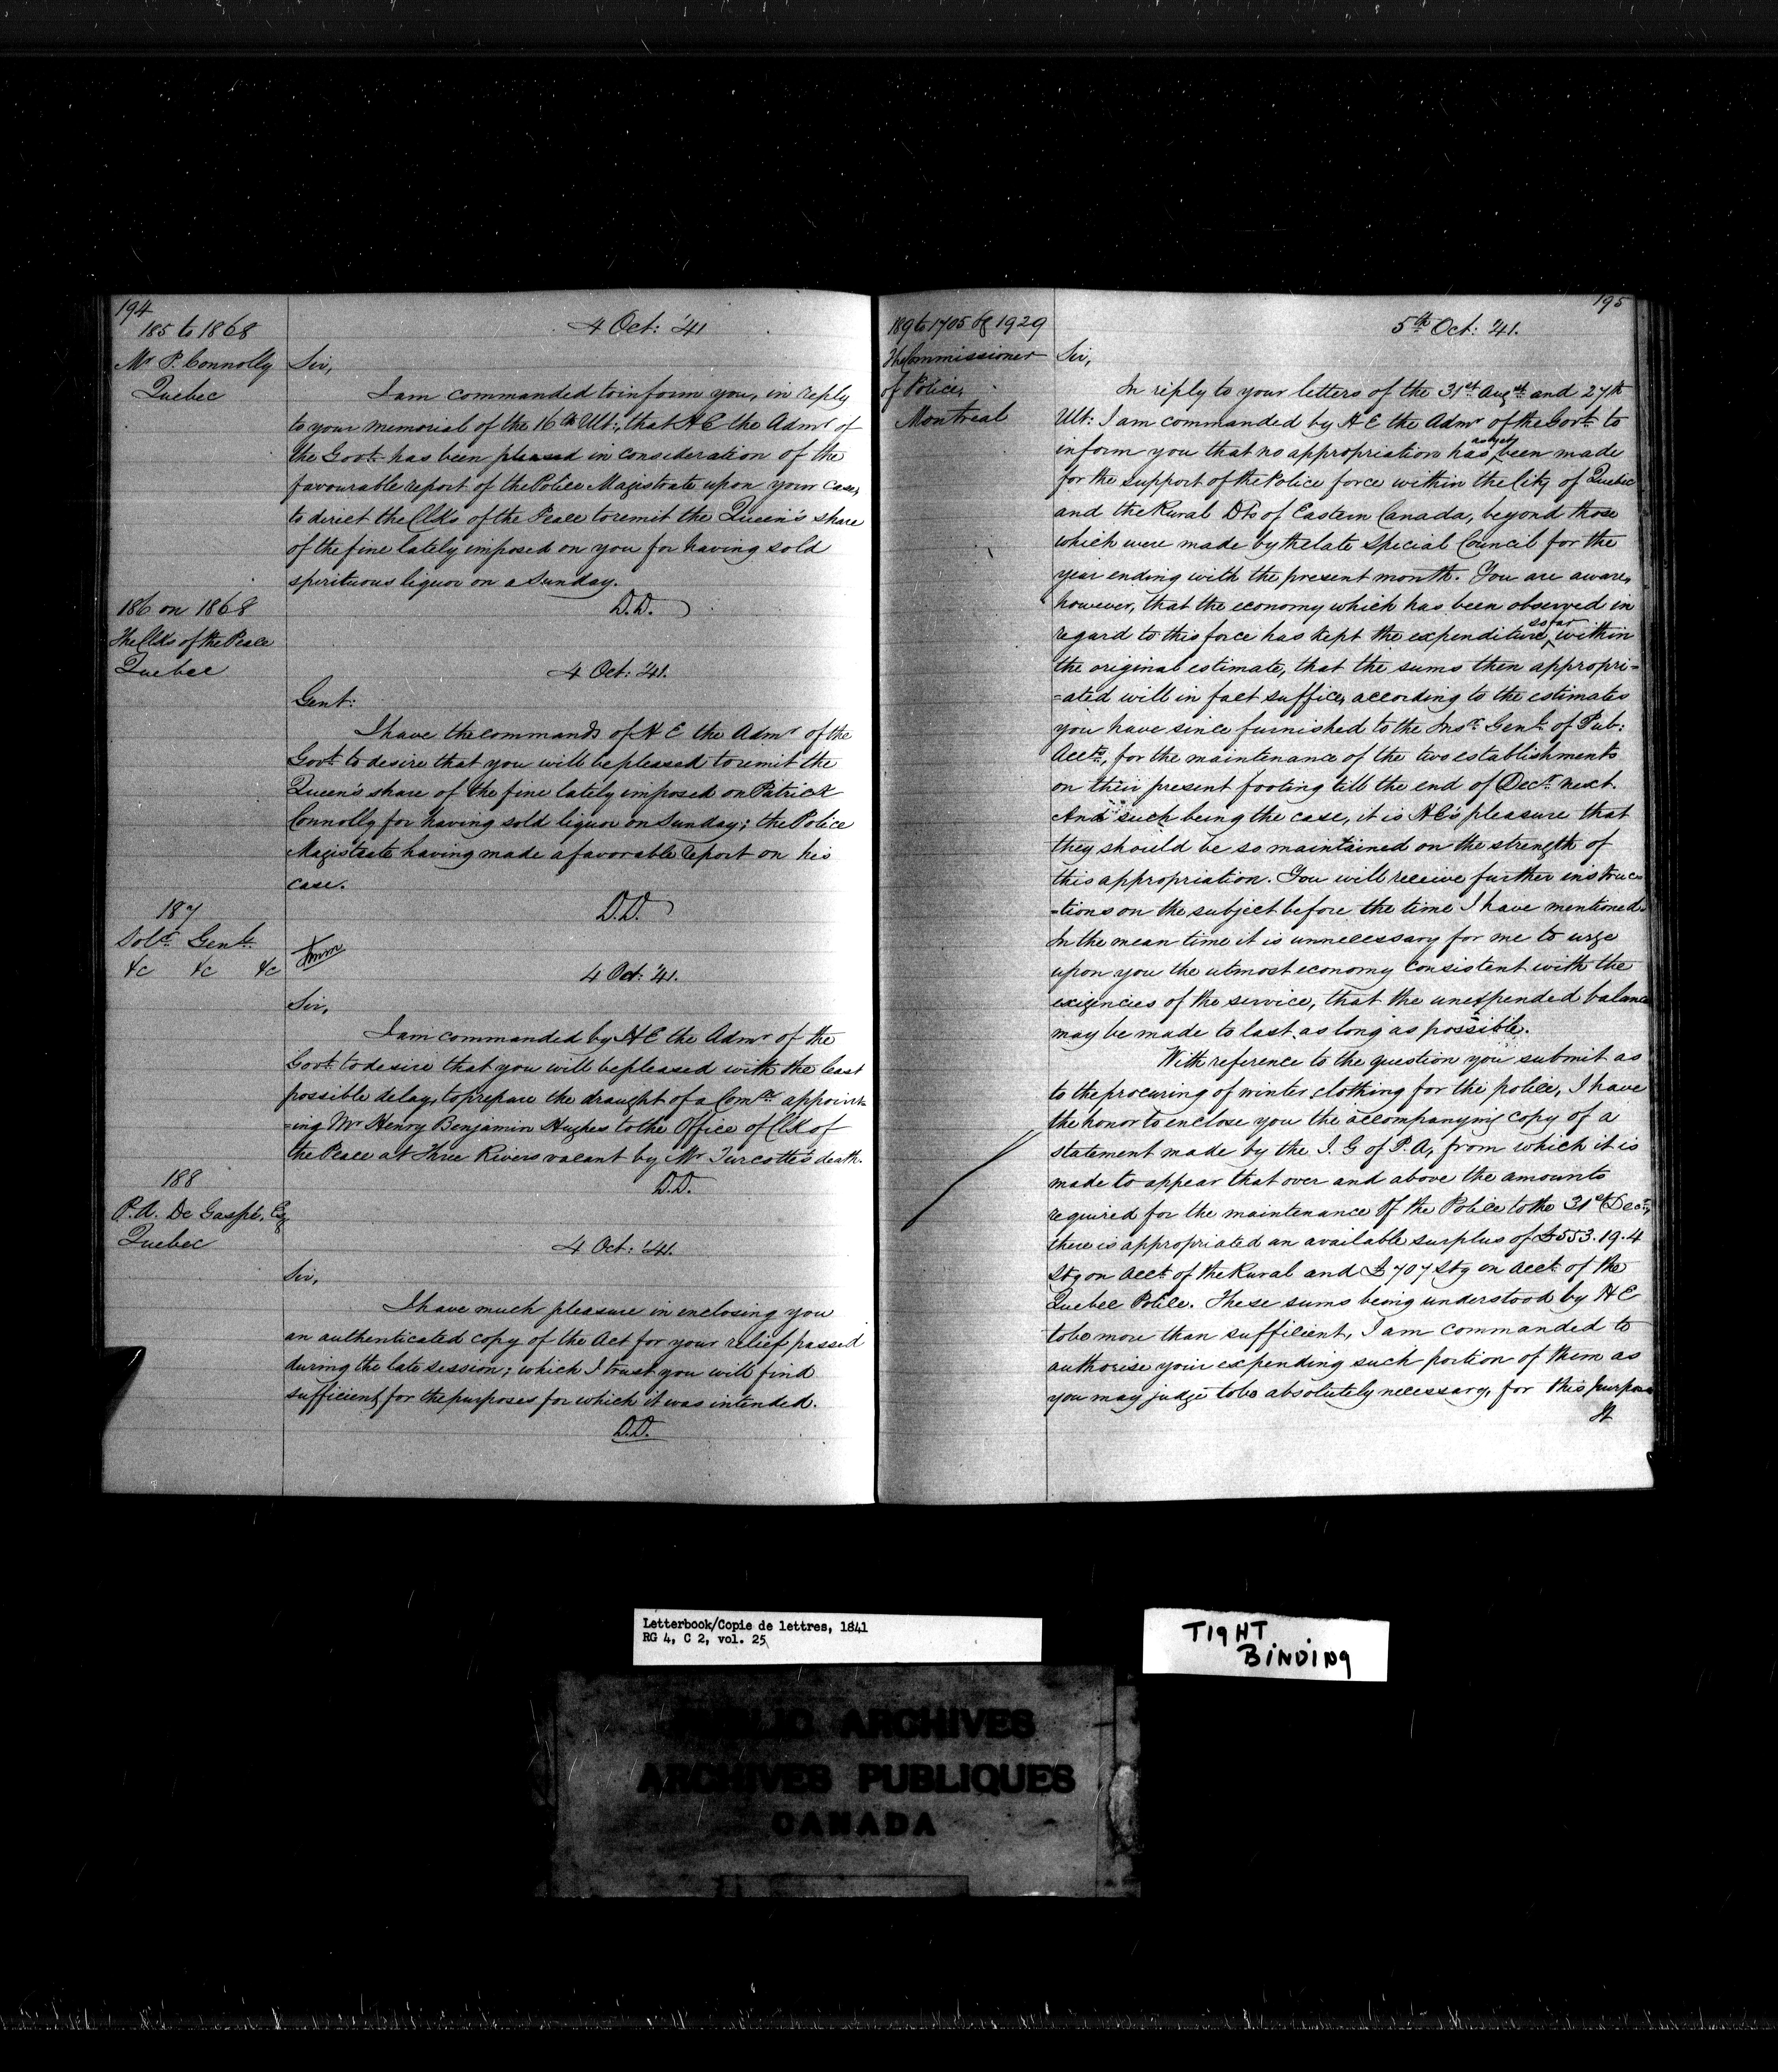 194
185 to 1868
Mr P. Connolly
Quebec
4 Oct: '41
Sir,
I am commanded to inform you, in reply
to your memorial of the 16th Ult:, that H E the Admr of
the Govt has been pleased in consideration of the
favourable report of the Police Magistrate upon your case,
to direct the Clks of the Peace to remit the Queen's share
of the fine lately imposed on you for having sold
spirituous liquor on a Sunday.
D.D.
186 on 1868
The Clks of the Peace
Quebec
4 Oct: '41.
Gent:
I have the commands of H E the Admr of the
Govt to desire that you will be pleased to remit the
Queen's share of the fine lately imposed on Patrick
Connolly for having sold liquor on Sunday; the Police
Magistrate having made a favorable report on his
case.
D.D.
187
Solr Genl
&c &c &c
4 Oct: '41.
Sir,
I am commanded by H E the Admr of the
Govt to desire that you will be pleased with the least
possible delay, to prepare the draught of a Comn appoint-
=ing Mr Henry Benjamin Hughes to the Office of Clk of
the Peace at Three Rivers vacant by Mr Turcotte's death.
D.D.
188
P. A. De Gaspé, Esq
Quebec
4 Oct: '41.
Sir,
I have much pleasure in enclosing you
an authenticated copy of the Act for your relief, passed
during the late session; which I trust you will find
sufficient for the purposes for which it was intended.
D.D.
195
189 to 1705 & 1929
The Commissioner
of Police,
Montreal
5th Oct: '41.
Sir,
In reply to your letters of the 31st Augt and 27th
Ult: I am commanded by H E the Admr of the Govt to
inform you that no appropriation has as yet been made
for the support of the Police force within the City of Quebec
and the Rural Dts of Eastern Canada, beyond those
which were made by the late Special Council for the
year ending with the present month. You are aware,
however, that the economy which has been observed in
regard to this force has kept the expenditure so far within
the original estimate, that the sums then appropri-
=ated will in fact suffice, according to the estimates
you have since furnished to the Insr Genl of Pub:
Accts, for the maintenance of the two establishments
on their present footing till the end of Decr next.
And such being the case, it is HE's pleasure that
they should be so maintained on the strength of
this appropriation. You will receive further instruc-
=tions on the subject before the time I have mentioned.
In the mean time it is unnecessary for me to urge
upon you the utmost economy consistent with the
exigencies of the service, that the unexpended balance
may be made to last as long as possible.
With reference to the question you submit as
to the procuring of winter clothing for the police, I have
the honor to enclose you the accompanying copy of a
statement made by the I. G of P. A, from which it is
made to appear that over and above the amounts
required for the maintenance of the Police to the 31st Decr,
there is appropriated an available surplus of £553.19.4
Stg on acct of the Rural and £707 Stg on acct of the
Quebec Police. These sums being understood by H E
to be more than sufficient, I am commanded to
authorise your expending such portion of them as
you may judge to be absolutely necessary, for this purpose
It
Letterbook/Copie de lettres, 1841
RG 4, C 2, vol. 25
TIGHT
BINDING
PUBLIC ARCHIVES
ARCHIVES PUBLIQUES
CANADA